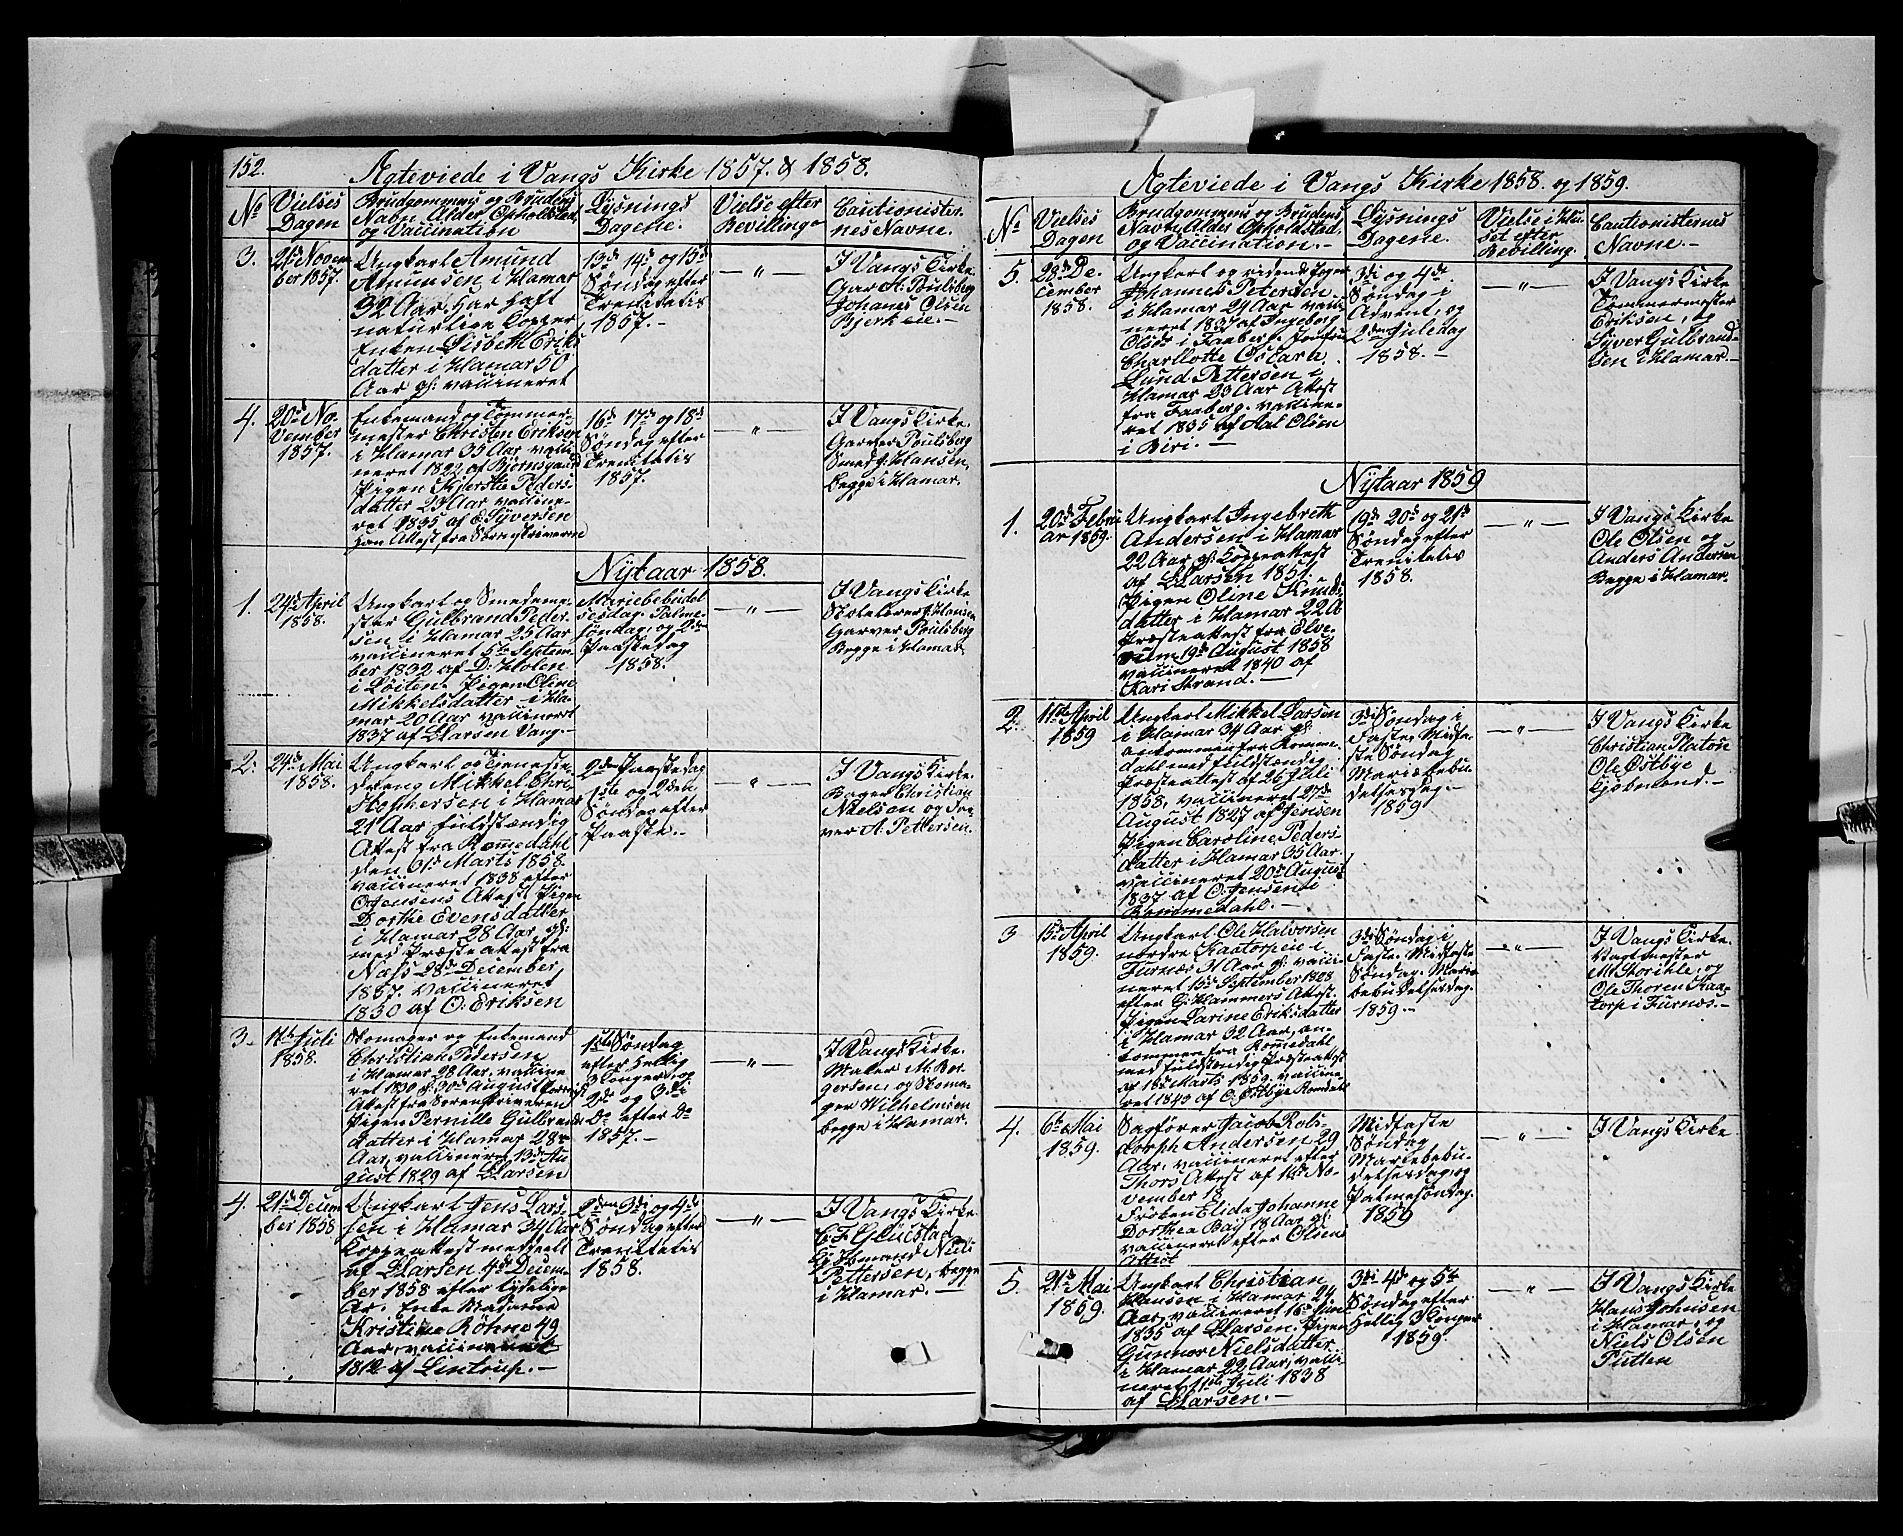 152.
Ægteviede i Vangs Kirke 1857. & 1858.
No
Vielses
Dagen
Brudgommens og Brudens
Nabn, Alder, Opholdsted,
og Vaccination
Lysnings
Dagene.
Vielse efter
Bevilling
Cautionister-
nes Navne.
3.
Novem
ber 1857.
Ungkarl Amund
Amunsen i Hamar
32 Aar, har haft
naturlige Copper
Enken Lisbeth Eriks
datter i Hamar 50
Aar gl: vaccineret
13de 14de og 15de
Søndag efter
Trenitetis
1857.-
— " —
I Vangs Kirke.
A. Poulsberg
Johanes Olsen
Bjerkeie.—
4.
20de No-
vember
1857.
Enkemand og Tommer-
mester Christen Eriksen
i Hamar 35 Aar vacci
neret 1822 af Bjørnsgaard
Pigen Kjerstie Peders-
datter 23 Aar vaccine-
ret 1835 af E. Syversen
han Attest fra Sorenskriveren
16de 17de og 18de
Søndag efter
Trenitetis
1857.
— " —
I Vangs Kirke.
Garver Poulsberg
Smed J. Hansen,
begge i Hamar.
Nytaar 1858.
1.
24de April
1858.
Ungkarl og Smedeme-
ster Gulbrand Peder-
sen i Hamar 25 Aar
vaccineret 5te Septem-
ber 1832 af D: Holen
i Løiten. Pigen Oline
Mikkelsdatter i Ha-
mar 20 Aar vaccineret
1837 af L. Larsen Vang.—
Mariebebudel-
sesdag. Palme-
søndag, og 2den
Paaskedag
1858.
— " —
I Vangs Kirke
J. Hansen
Garver Poulsberg
Begge i Hamar.
2.
24de Mai
1858.
Ungkarl og Tjeneste-
dreng Mikkel Chri-
stophersen i Hamar
21 Aar fuldstændig
Attest fra Romedahl
den 31te Marts 1858.
vaccineret 1838 efter
O. Jensens Attest. Pigen
Dorthe Evensdatter
i Hamar 28 Aar, gl:
med Præsteattest fra
Næss 28de December
1857. vaccineret
1830 af O: Eriksen
2den Paaskedag
1ste og 2den
Søndag efter
Paaske.—
— " —
I Vangs Kirke.
Bager Christian
Nielsen og
A. Pettersen.
3.
Juli
1858.
Skomager og Enkemand
Christian Pedersen
i Hamar 28 Aar, vaccine
ret 1830 d: 30te August
Attest fra Sorenskriveren
Pigen Pernille Gulbrands
datter i Hamar 28
Aar, vaccineret 13de Au
gust 1829 af L. Larsen
1ste Søndag
efter Hellig
3 Konger, og
2de og 3di
Do efter Do
1857.—
— " —
I Vangs Kirke.
Maler M. Bor-
gersen, og Skoma-
ger Wilhelmsen
begge i Hamar.
4.
21de Decem
ber 1858
Ungkarl Jens Lars-
sen i Hamar 34 Aar
Coppeattest meddeelt
af L. Larsen 4de Decem-
ber 1858 efter tydelige
Ar. Enke Madame
Kristine Röhne 49
Aar, vaccineret
1812 af Lintrup.—
2den 3di og 4de
Søndag efter
Trenitetis
1858.
— " —
I Vangs Kirke.
C. F. Glückstad
Kjøbmand Niels
Pettersen, begge
i Hamar.—
Ægteviede i Vangs Kirke 1858. og 1859.
No
Vielses
Dagen
Brudgommens og Brudens
Navn, Alder, Opholdsted,
og Vaccination.—
Lysnings
Dagene.
Vielse i Hu-
set efter
Bevilling.
Cautionisternes
Navne.—
5.
28de De-
cember
1858.
Ungkarl og
Johannes Petersen
i Hamar 24 Aar vacci
neret 1837 af Ingeborg
Olsd: i Faaberg. Jomfru
Charllotte Ostara
Lund Pettersen i
Hamar 23 Aar Attest
fra Faaberg. vaccine-
ret 1835 af Aal Olsen
i Biri.—
3di og 4de
Søndag i
Advent, og
2den Juledag
1858.—
— " —
I Vangs Kirke
Tommermester
Eriksen, og
Syver Gulbrand-
sen i Hamar.—
Nytaar 1859
1.
20de Febru
ar 1859.
Ungkarl Ingebreth
Andersen i Hamar
22 Aar gl: Koppeattest
af L. Larsen 1851.
Pigen Oline Knuds
datter i Hamar 22 A
Præsteattest fra Elve-
rum 19de August 1858
vaccineret 1840 af
Kari Strand.—
19de 20de og 21de
Søndag efter
Trenitetis
1858.
— " —
I Vangs Kirke
Ole Olsen og
Anders Andersen
Begge i Hamar.
2.
11te April
1859
Ungkarl Mikkel Larsen
i Hamar 34 Aar gl:
ankommen fra Romme-
dahl med fuldstændig
Præsteattest af 26 Juli
1858, vaccineret 27de
August 1827 af Jensen
Pigen Caroline Peders-
datter i Hamar 35 Aar.
vaccineret 20de August
1837 af O: Jensen i
Rommedahl.—
3di Søndag i
Faste, Midfa-
ste Søndag
Mariæbebu-
delsesdag.—
1859
— " —
I Vangs Kirke
Christian Platou
Ole Østbye
Kjøbmænd—
3
15de April
1859.
Ungkarl Ole Halvorsen
nordre Kaatorpeie i
Furnæs 31 Aar gl: vacci
neret 15de September 1828
efter G: Hammers Attest.
Pigen Karine Eriksdatter
i Hamar 32 Aar, an-
kommen fra Romedahl
med fuldstændig Præsteattest
af 18de Marts 1859, vaccine-
ret 1843 af C. Østbye Romdahl
3di Søndag i
Faste. Midfaste
Søndag. Marie-
bebudelsesdag.
1859.—
— " —
I Vangs Kirke.
Vagtmester
og
Ole Thoren Kaa-
torp i Furnæs.—
4.
6te Mai
1859.
Sagfører Jacob Rols-
dorph Andersen 29
Aar, vaccineret efter
Thors Attest af 14de No-
vember 18
Frøken Elida Johanne
Dorthea Bay 18 Aar gl:
vaccineret efter Olsens
Attest
Midfaste
Søndag
Mariebebu-
delsesdag, og
Palmesøndag.
1859
— " —
I Vangs Kirke
5.
21de Mai
1859.
Ungkarl Christian
Hansen i Hamar 24
Aar, vaccineret 16de Juni
1835 af L. Larsen. Pigen
Gunnor Nielsdatter
i Hamar 22 Aar, vacci-
neret 1ste Juli 1838
af L. Larsen.—
3di 4de og 5te
Søndag efter
Hellig 3 Konger
1859.
— " —
I Vangs Kirke
Hans Johnsen
i Hamar, og
Niels Olsen
Putten